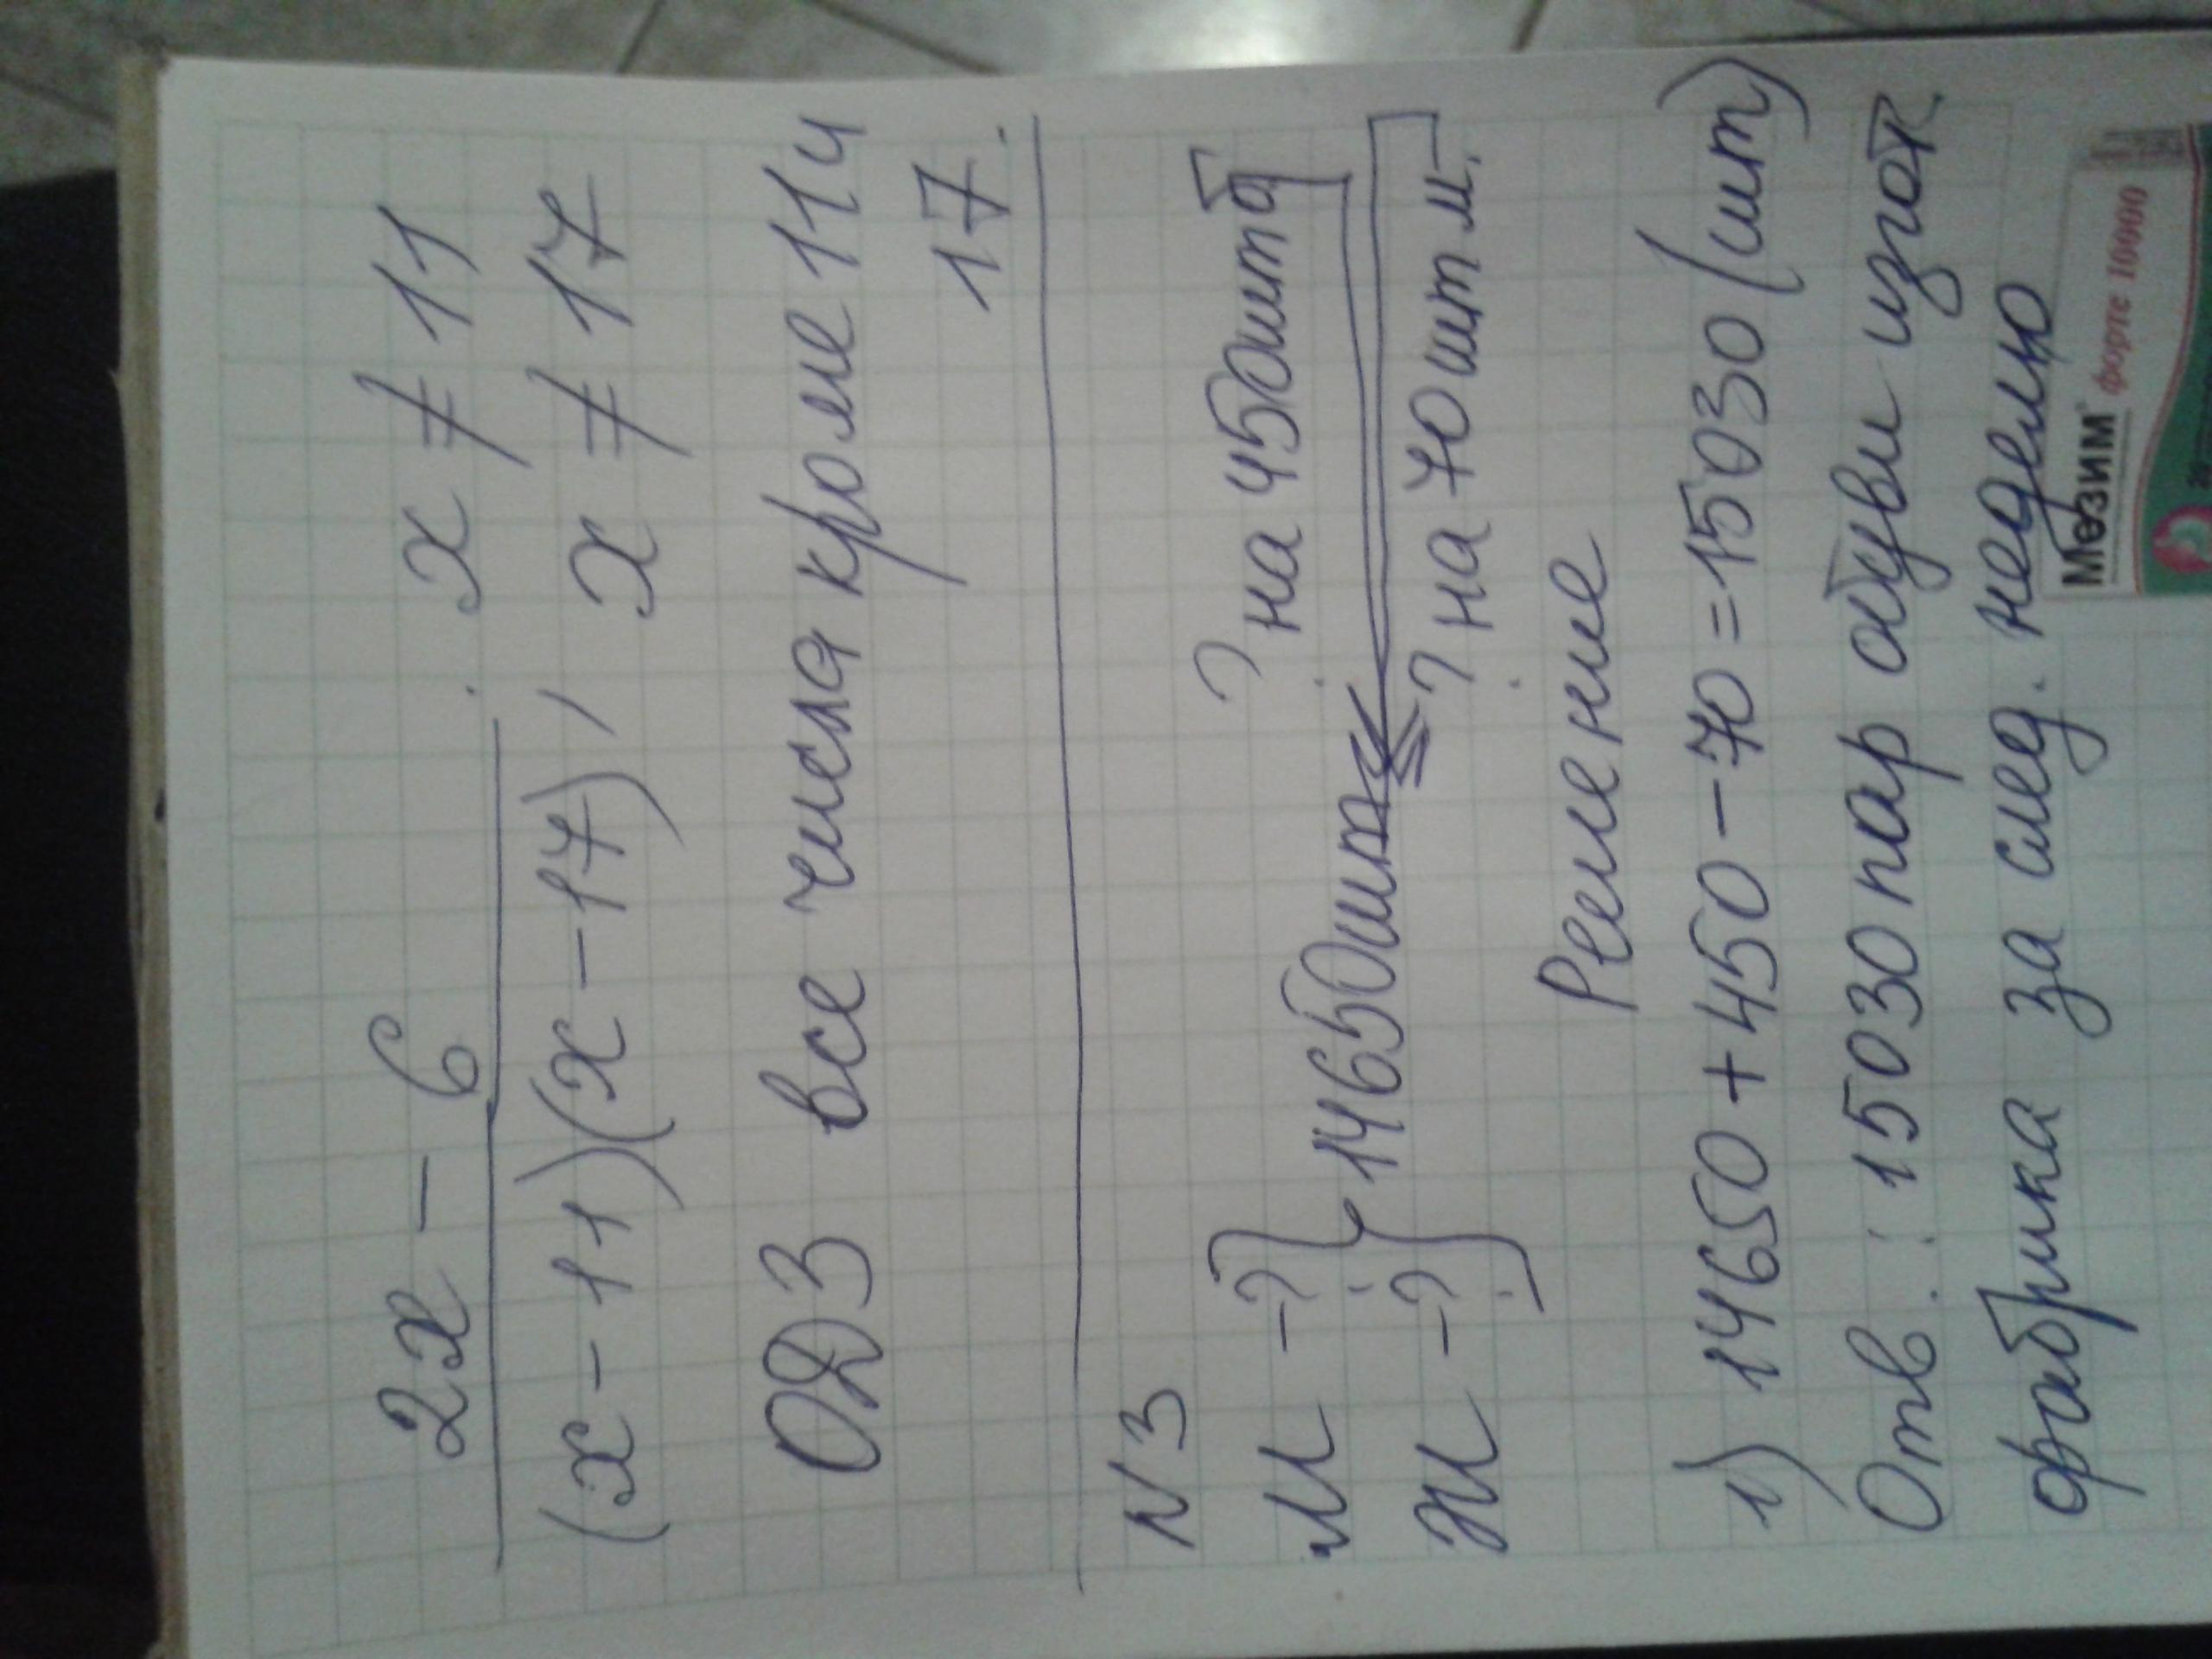 2x - 6
(x - 11)(x - 17), x ≠ 11
x ≠ 17
ОДЗ все числа кроме 11 и
17.
N 3
М - ? ? на 450шт б
14650шт
Ж - ? ? на 70 шт м.
Решение
1) 14650 + 450 - 70 = 15030 (шт)
Отв.: 15030 пар обуви изгот.
фабрика за след. неделю
Мезим® форте 10000